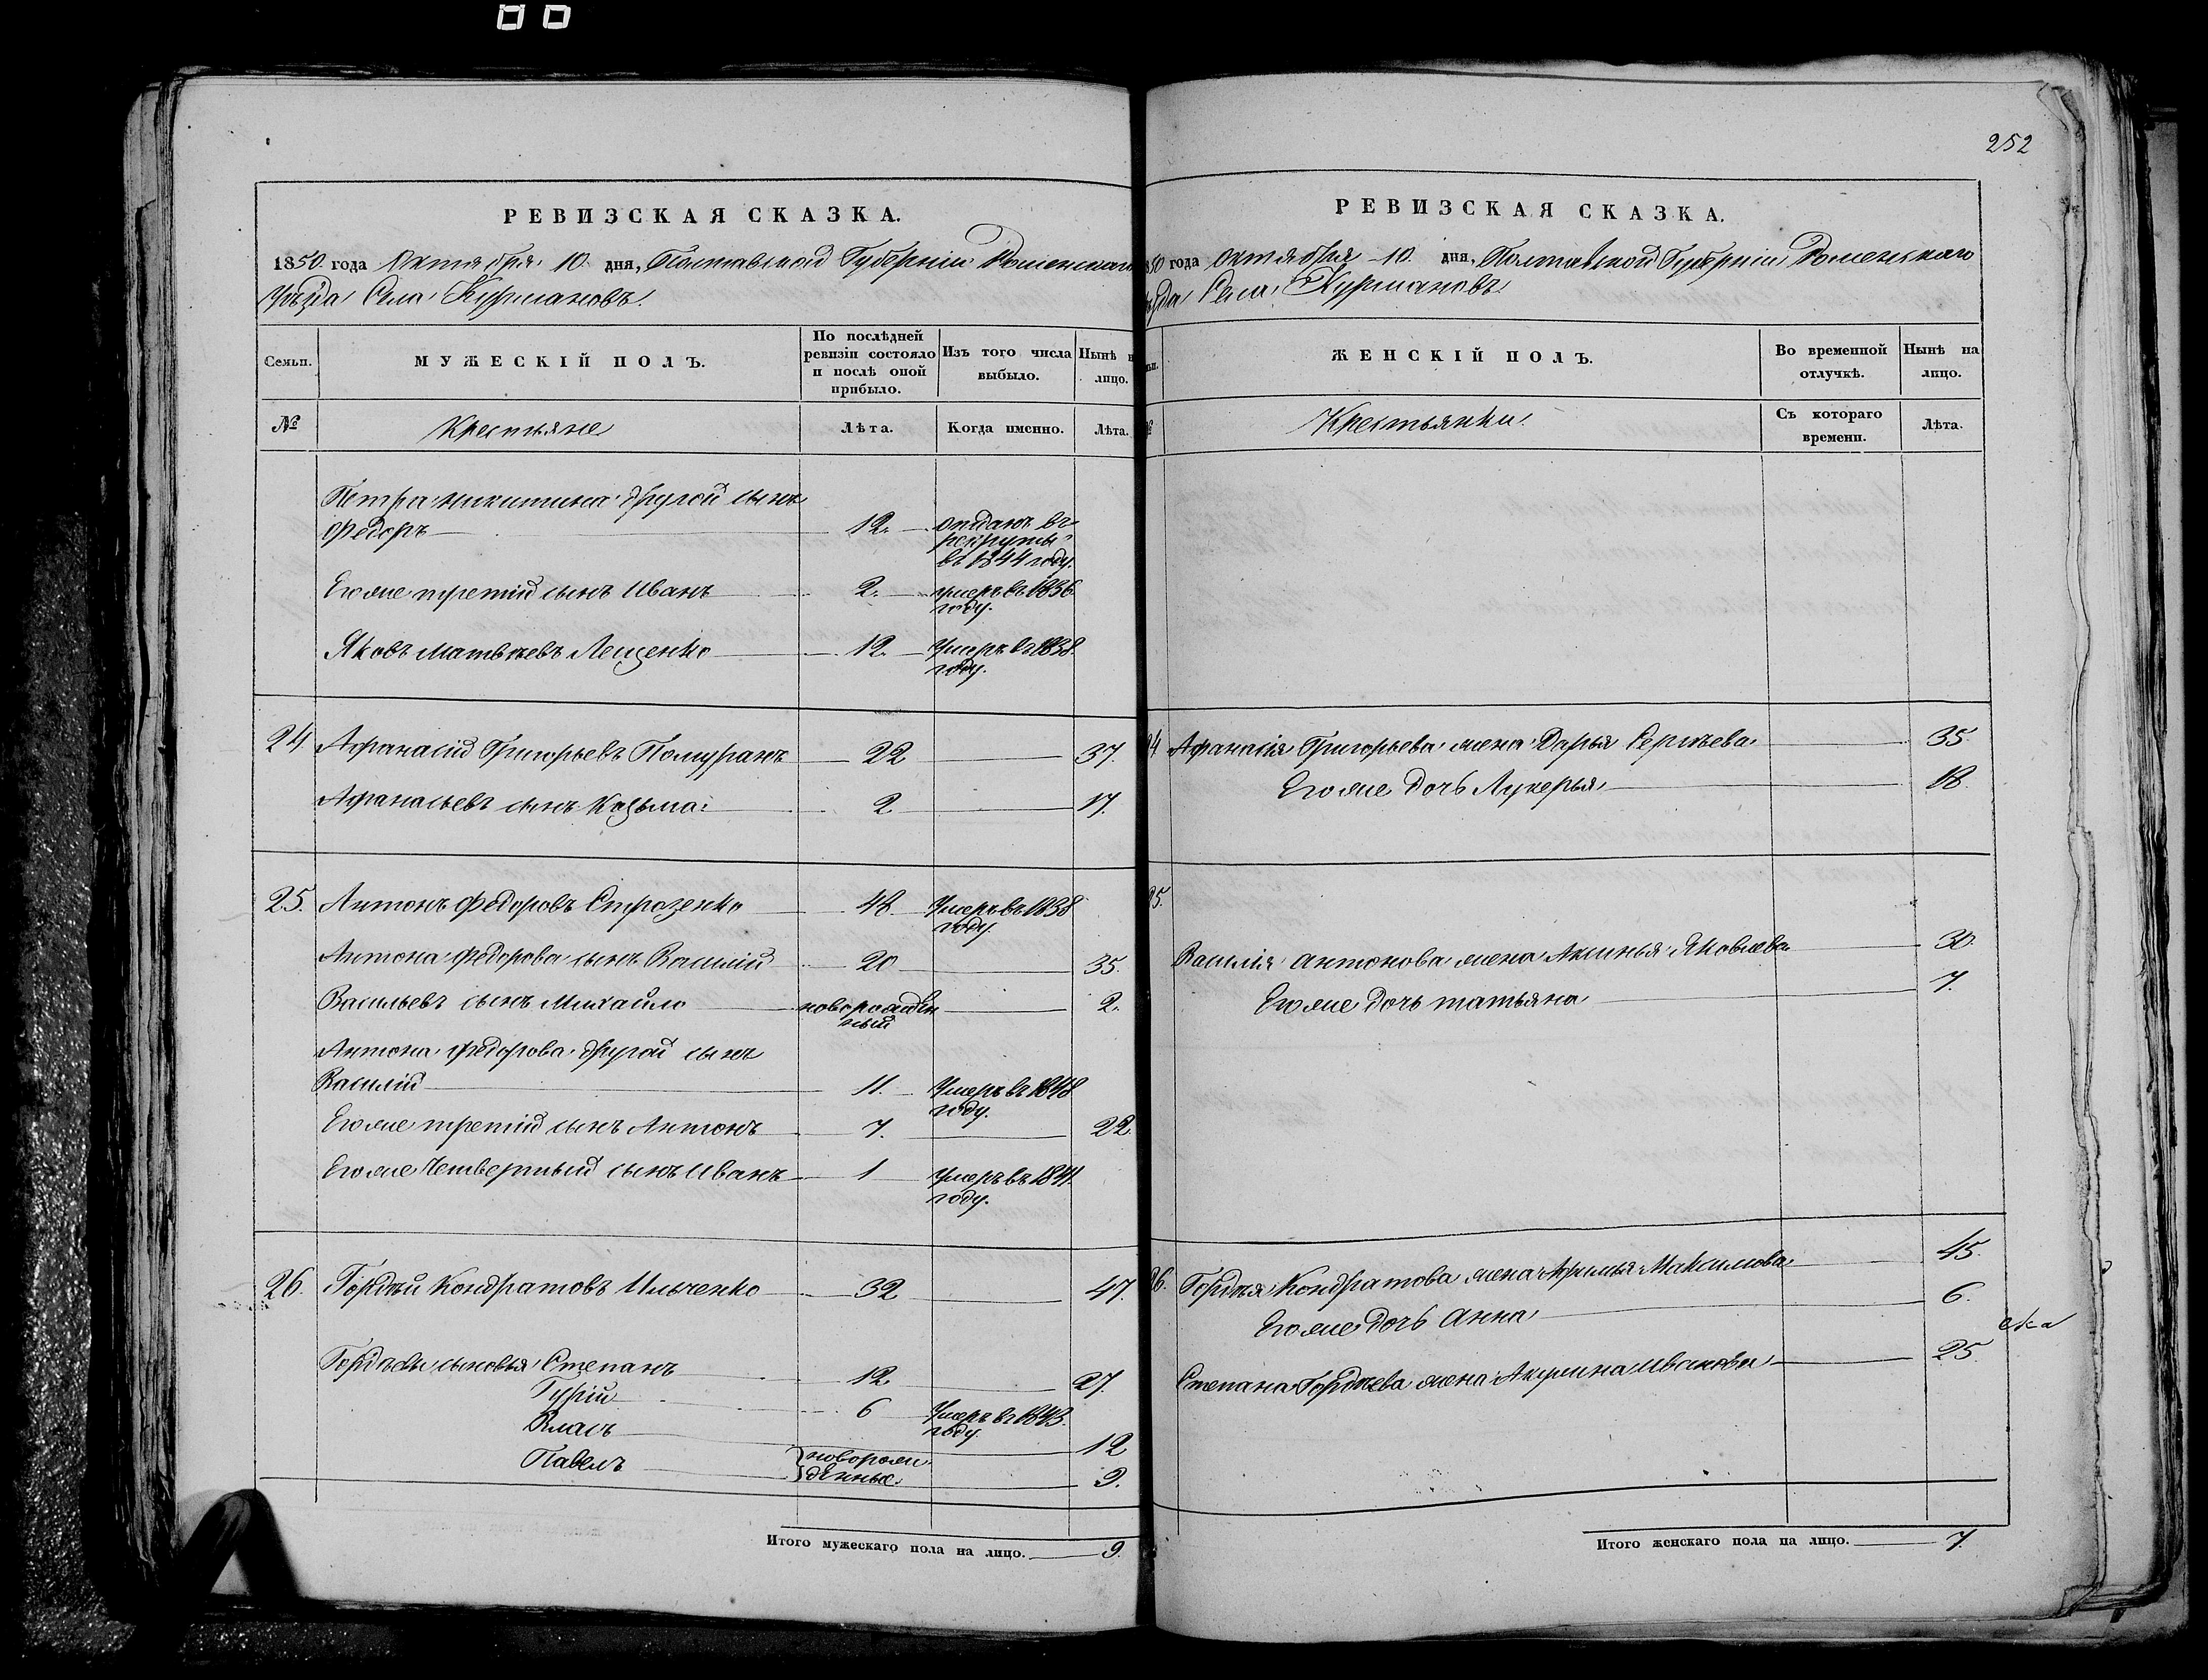 РЕВИЗСКАЯ СКАЗКА.
1850. года Октября 10. дня, Полтавской Губерніи Роменскаго
Уѣзда Села Курмановъ.
Семьи.
МУЖЕСКІЙ ПОЛЪ.
По послѣдней
ревизіи состояло
и послѣ оной
прибыло.
Изъ того числа
выбыло.
Нынѣ на
лицо.
№
Крестьяне
Лѣта.
Когда именно.
Лѣта.
Петра Никитина другой сынъ
Федоръ 12. отданъ въ
рекруты
въ 1844 году.
Его же третій сынъ Иванъ 2. умеръ въ 1836
году.
Яковъ Матвѣевъ Лещенко 12. Умеръ въ 1838.
году.
24 Афанасій Григорьевъ Помуранъ 22 37.
Афанасьевъ сынъ Козьма 2 17.
25. Антонъ Федоровъ Строзенко 48. Умеръ въ 1838
году.
Антона Федорова сынъ Василій 20 35.
Васильевъ сынъ Михайло новорожден
ный 2.
Антона Федорова другой сынъ
Василій 11. Умеръ въ 1848
году.
Его же третій сынъ Антонъ 7. 22.
Его же Четвертый сынъ Иванъ 1 Умеръ въ 1841.
году.
26. Гордѣй Кондратовъ Ильченко 32 47.
Гордѣевы сыновья Степанъ 12 27.
Гурій 6 Умеръ въ 1843.
году.
Власъ 12
Павелъ новорож
денные 9.
Итого мужескаго пола на лицо. 9.
252
РЕВИЗСКАЯ СКАЗКА.
850 года Октября 10. дня, Полтавской Губерніи Роменскаго
ѣзда Села Курмановъ
ьи.
ЖЕНСКІЙ ПОЛЪ.
Во временной
отлучкѣ.
Нынѣ на
лицо.
№
Крестьянки
Съ котораго
времени.
Лѣта.
24 Афанасія Григорьева жена Дарья Сергѣева 35.
Его же дочь Лукерья 18.
25.
Василія Антонова жена Аксинья Яковлева 30.
Его же дочь Татьяна 7.
26. Гордѣя Кондратова жена Максимова 45.
Его же дочь Анна 6.
Степана Гордѣева жена Акулина Иванова 25.
Итого женскаго пола на лицо. 7.